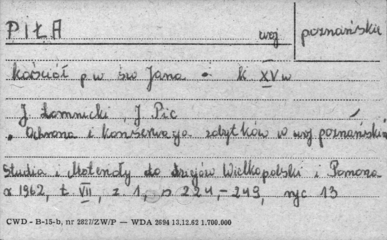 PIŁA woj poznańskie
kościół p.w św Jana • K XV w
J Łomnicki, J Pic
• Ochrona i konserwacja zabytków w woj poznański
Studia i Materiały do dziejów Wielkopolski i Pomorza
r 1962, t VII, z 1, s 224-249, ryc 13
CWD - B-15-b, nr 2827/ZW/P — WDA 2694 13.12.62 1.700.000